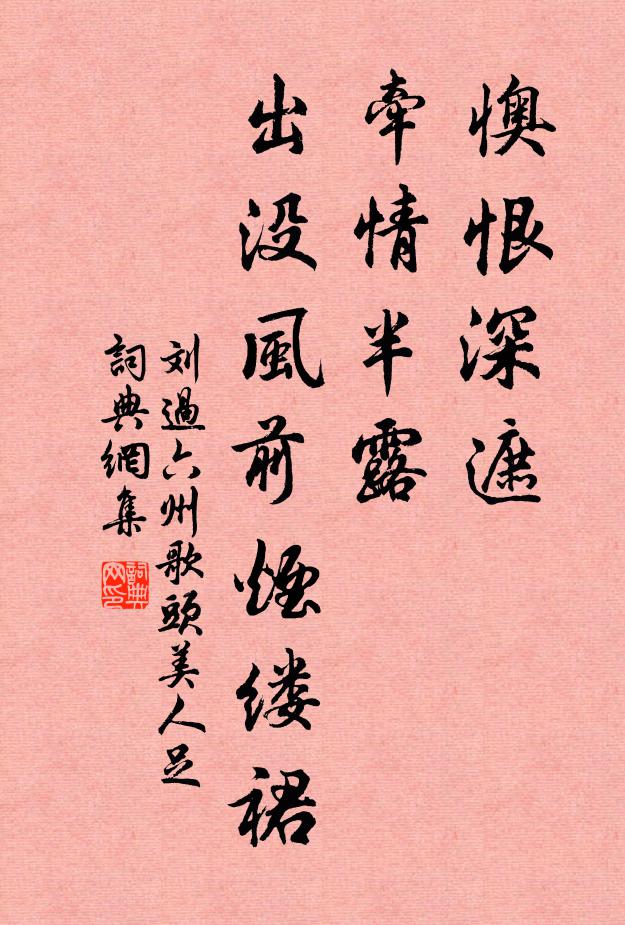 懊恨深遮
牽情半露
出没風前煙缕裙
刘過六州歌頭美人足
詞典網集
詞典网印